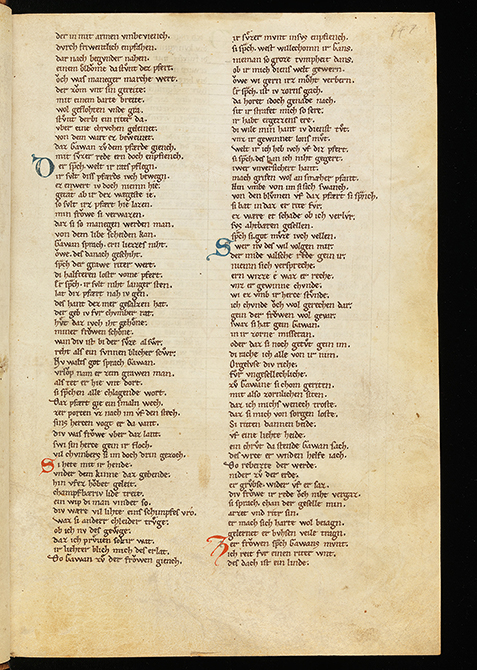 der in mit armen vmbeviench.
dvrch frwentlich enpfahen.
dar nach begvnder nahen.
einem ölbome da stvnt dez pfert.
öch was maneger marche wert.
der zom vnt sin gereite.
mit einem barte breite.
wol geflohten vnde gra.
stvnt derbi ein riter da.
vber eine chrvchen geleinet.
von dem wart ez beweinet.
daz Gawan zv dem pfærde giench.
mit svzer rede ern doch enpfiench.
Er sp̄ch welt ir rates pflegn.
ir solt diss pfærds ivch bewegn.
ez enwert iv doch niemn hie.
getæt ab ir dez wægeste ie.
so solt irz pfært hie lazen.
min fröwe si verwazen.
daz si so manegen werden man.
von dem libe scheiden kan.
Gawan sprach. ern liezes niht.
öwe. des danach geschiht.
sp̄ch der grawe riter wert.
di halfteren lost vome pfert.
Er sp̄ch. ir svlt niht langer sten.
lat diz pfært nah iv gen.
des hant dez mer gesalzen hat.
der geb iv fvr chvmber rat.
hvt daz ivch iht gehöne.
miner fröwen schöne.
wan div ist bi der svze al svr.
reht als ein svnnen blicher scvr.
Nv waltes got sprach Gawan.
vrlöp nam er zem grawen man.
als tet er hie vnt dort.
si sp̄chen alle chlagende wort.
Daz pfært gie ein smaln wech.
zer porten vz nach im vf den stech.
sins hercen vogt er da vant.
div was fröwe vber daz lant.
swi sin herce gein ir floch.
vil chvmbers si im doch drin gezoch.
Si hete mit ir hende.
vnder dem kinne daz gebende.
hin vfez höbet geleit.
champfbæriv lide treit.
ein wip di man vindet so.
div wære vil lihte eins schimpfes vro.
waz si anderr chleider trvge.
ob ich nv des gewge.
daz ich prvuen solt ir wat.
ir liehter blich mich des erlat.
Do Gawan zv der fröwen giench.
ir svzer mvnt insvs enpfiench.
si sp̄ch. west willechomn ir gans.
nieman so groze tvmpheit dans.
ob ir mich dienst welt gewern.
öwe wi gern irz möht verbern.
Er sp̄ch. ist iv zornes gach.
da horet idoch genade nach.
sit ir strafet mich so sere.
ir habt ergezzens ere.
di wile min hant iv dienst tvt.
vnz ir gewinnet lons mvt.
welt ir ich heb ivch vf diz pfert.
si sp̄ch. des han ich niht gegert.
iwer vnversichertiv hant.
mach grifen wol an smæher pfant.
Hin vmbe von im si sich swanch.
von den blvmen vf daz pfært si sp̄nch.
si bat in daz er rite fvr.
ez wære et schade ob ich verlvr.
svs ahtbæren gesellen.
sp̄ch si. got mvze ivch vellen.
Swer nv des wil volgen mir.
der mide valsche rede gein ir.
niemn sich verspreche.
ern wizze ê waz er reche.
vnz er gewinne chvnde.
wi ez vmb ir herce stvnde.
ich chvnde öch wol gerechen dar.
gein der fröwen wol gevar.
swaz si hat gein Gawan.
in ir zorne missetan.
oder daz si noch getvt gein im.
di rache ich alle von ir nim.
Orgelvse div riche.
fvr vngeselleclliche.
zv Gawane si chom geriten.
mit also zornlichen siten.
daz ich michs wenech troste.
daz si mich von sorgen loste.
Si riten dannen beide.
vf eine liehte heide.
ein chrvt da stende Gawan sach.
des wrze er wnden helfe iach.
Do rebeizte der werde.
nider zv der erde.
er grvbse. wider vf er saz.
div fröwe ir rede öch niht vergaz.
si sprach. chan der geselle min.
arzet vnd riter sin.
er mach sich harte wol beiagn.
gelernet er bvhsen veile tragn.
Zer fröwen sp̄ch Gawans mvnt.
ich reit fvr einen riter wnt.
des dach ist ein linde.